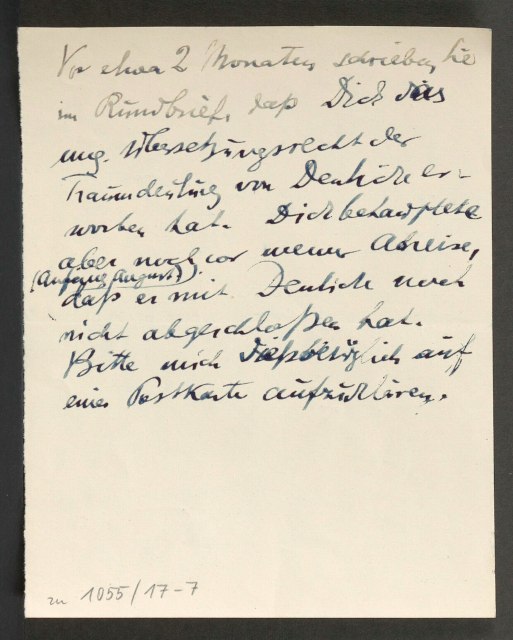 Vor etwa 2 Monaten schrieben Sie
im Rundbrief, daß Dick das
ung. Übersetzungsrecht der
Traumdeutung von Deuticke er-
worben hat. Dick behauptete
aber noch vor meiner Abreise,
(Anfang August)
daß er mit Deuticke noch
nicht abgeschloßen hat.
Bitte mich dießbezüglich auf
einer Postkarte aufzuklären.
zu 1055/17-7